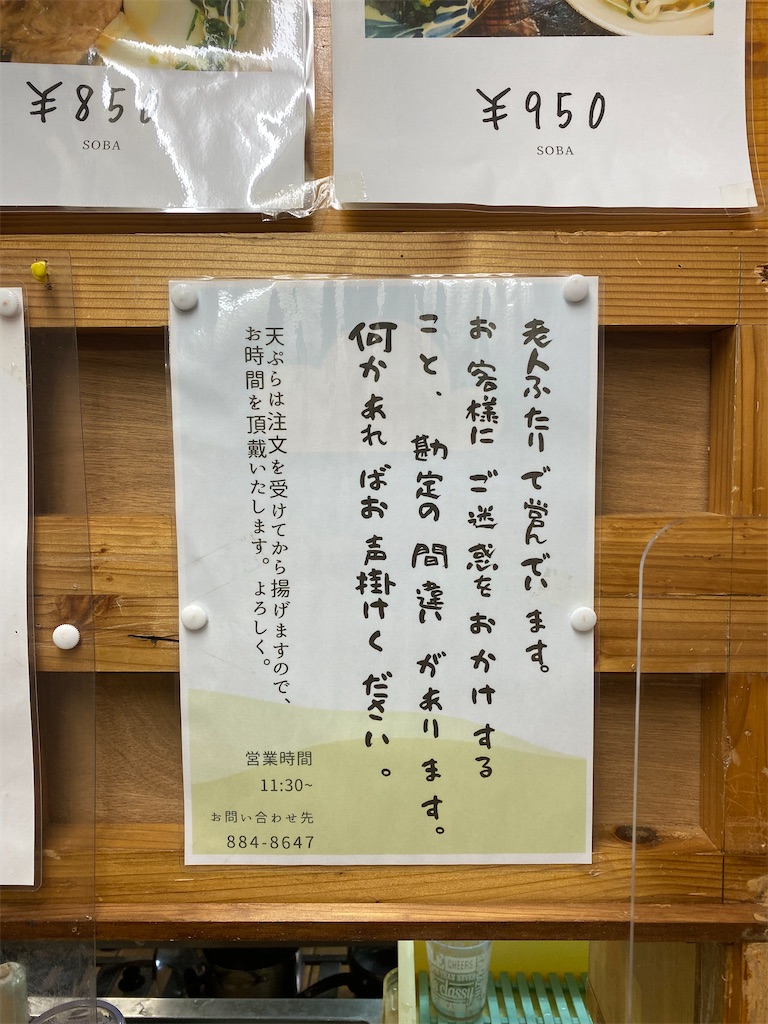 ¥850
SOBA
¥950
SOBA
老人ふたりで営んでいます。
お客様にご迷惑をおかけする
こと、勘定の間違いがあります。
何かあればお声掛けください。
天ぷらは注文を受けてから揚げますので、
お時間を頂戴いたします。よろしく。
営業時間
11:30~
お問い合わせ先
884-8647
CHEERS
classy